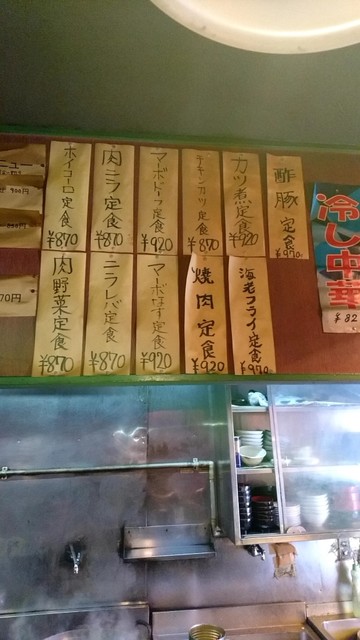 ニュー
ホイコーロ定食
¥870
肉ニラ定食
¥870
マーボドーフ定食
¥920
チキンカツ定食
¥870
カツ煮定食
¥920
酢豚定食
¥970
冷し中華
肉野菜定食
¥870
ニラレバ定食
¥870
マーボなす定食
¥920
焼肉定食
¥920
海老フライ定食
¥970
70円